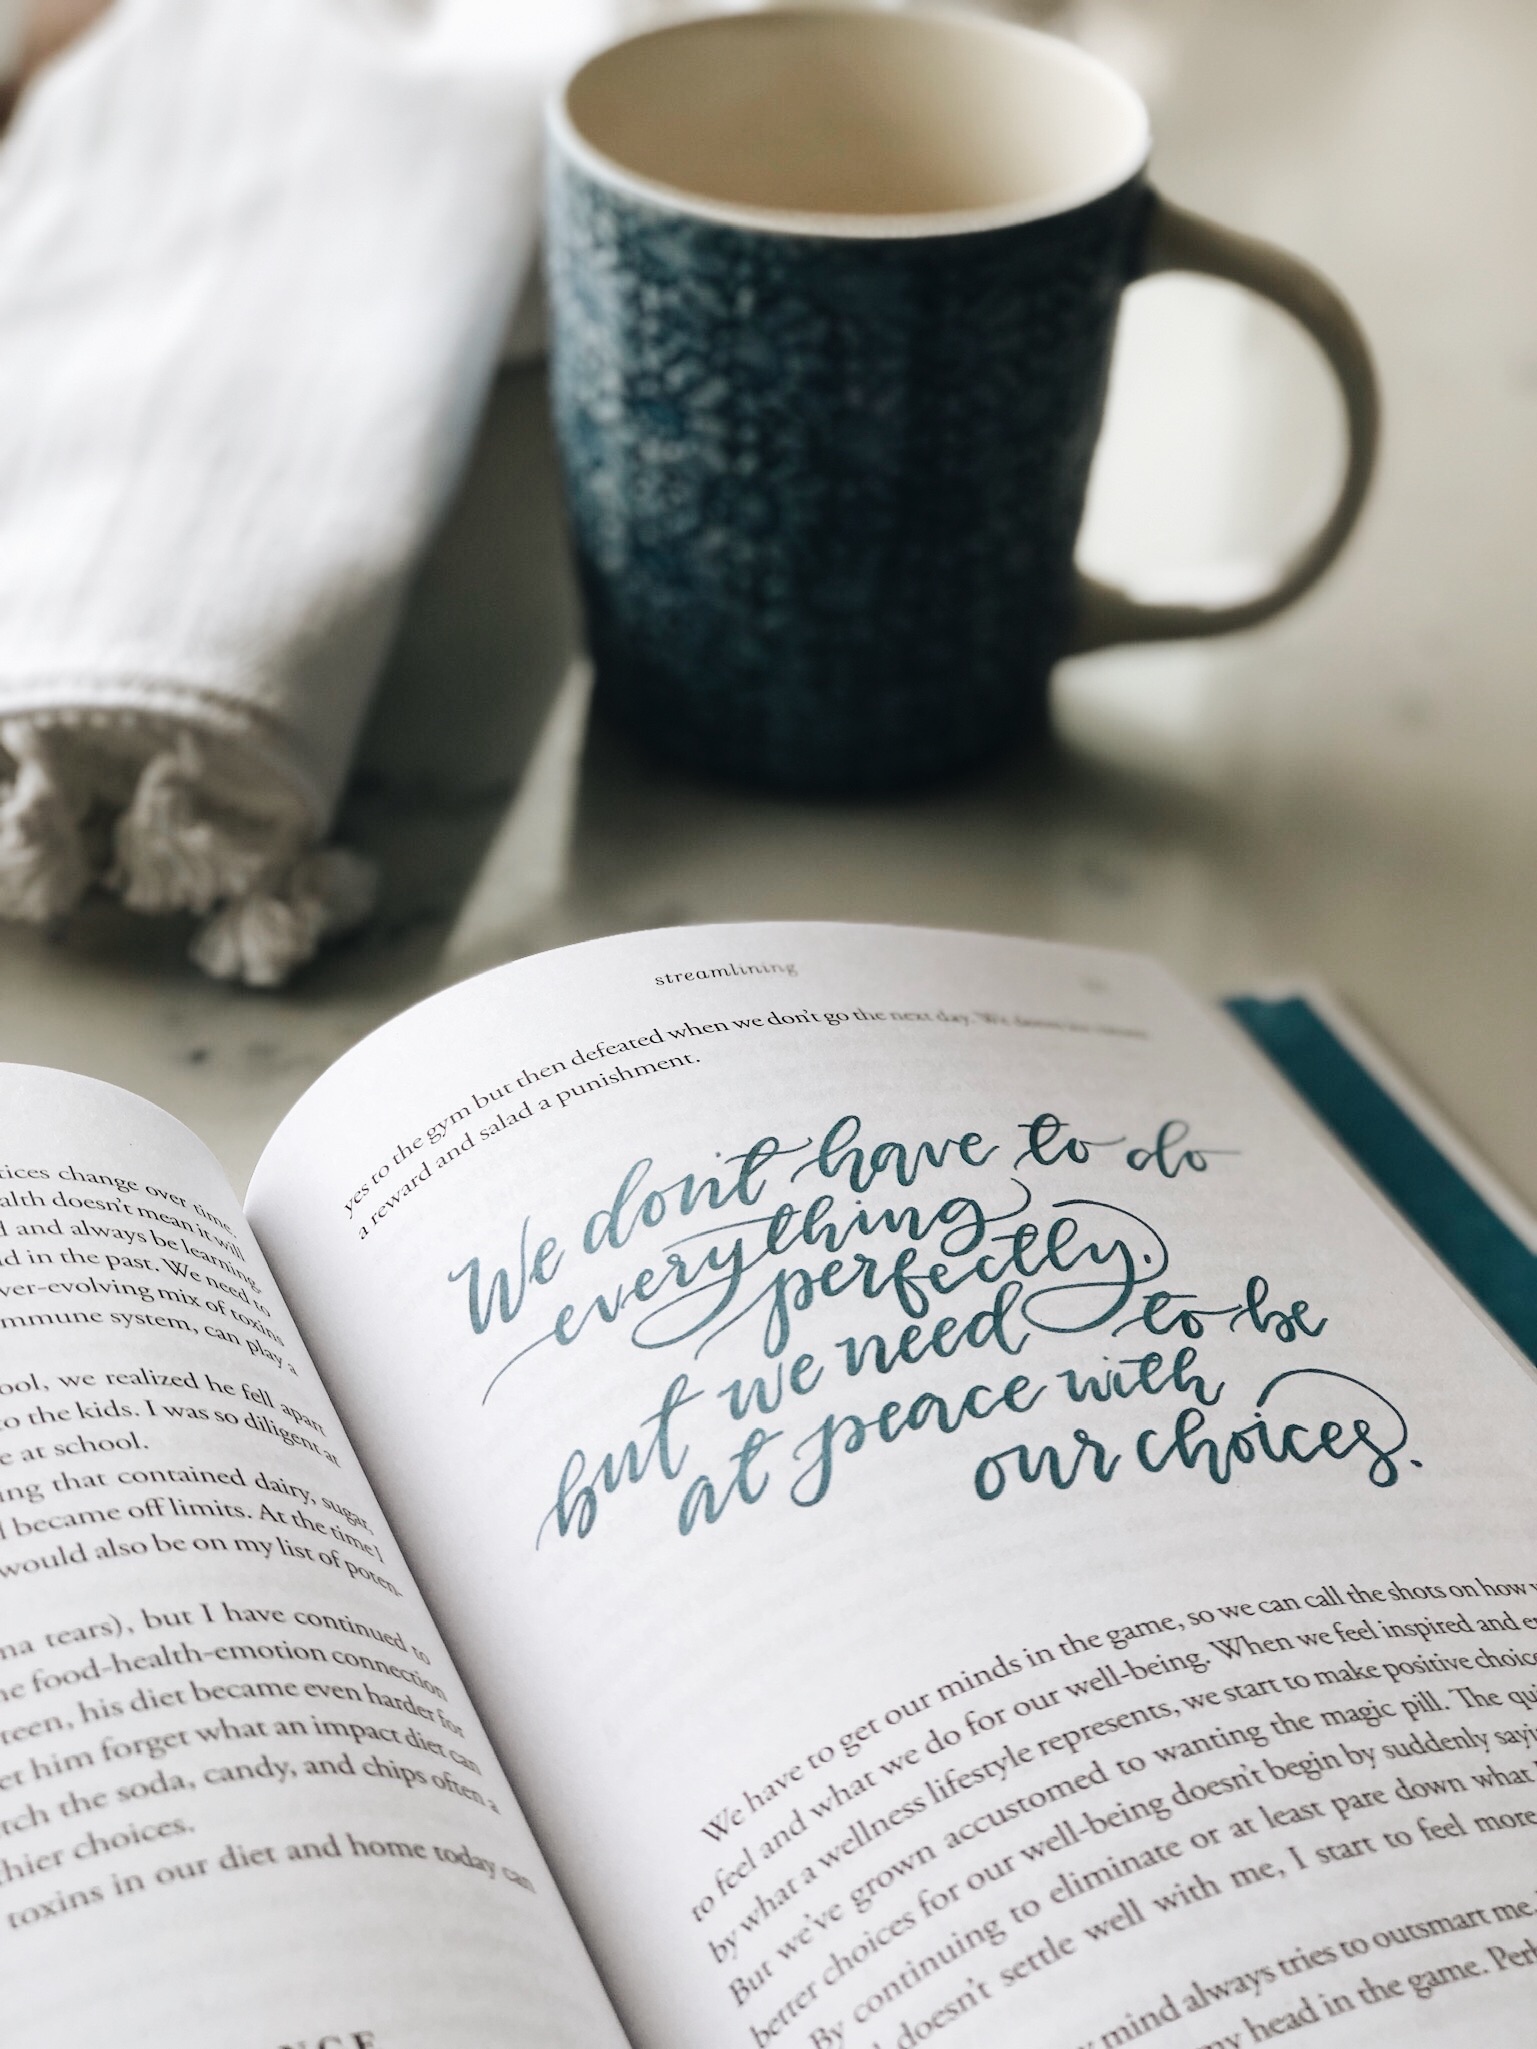 tices change over time.
alth doesn't mean it will
d and always be learning
ld in the past. We need to
ver-evolving mix of toxins
mmune system, can play a
ool, we realized he fell apart
to the kids. I was so diligent at
e at school.
ing that contained dairy, sugar,
l became off limits. At the time I
would also be on my list of poten-
ma tears), but I have continued to
he food-health-emotion connection
reen, his diet became even harder for
et him forget what an impact diet can
rch the soda, candy, and chips often a
hier choices.
toxins in our diet and home today can
NCE
streamlining
yes to the gym but then defeated when we don't go the next day. We
a reward and salad a punishment.
We don't have to do
everything
perfectly.
but we need to be
at peace with
our choices.
We have to get our minds in the game, so we can call the shots on how
to feel and what we do for our well-being. When we feel inspired and
by what a wellness lifestyle represents, we start to make positive choice
But we've grown accustomed to wanting the magic pill. The qui
better choices for our well-being doesn't begin by suddenly sayi
By continuing to eliminate or at least pare down what
doesn't settle well with me, I start to feel more
mind always tries to outsmart me.
my head in the game. Per